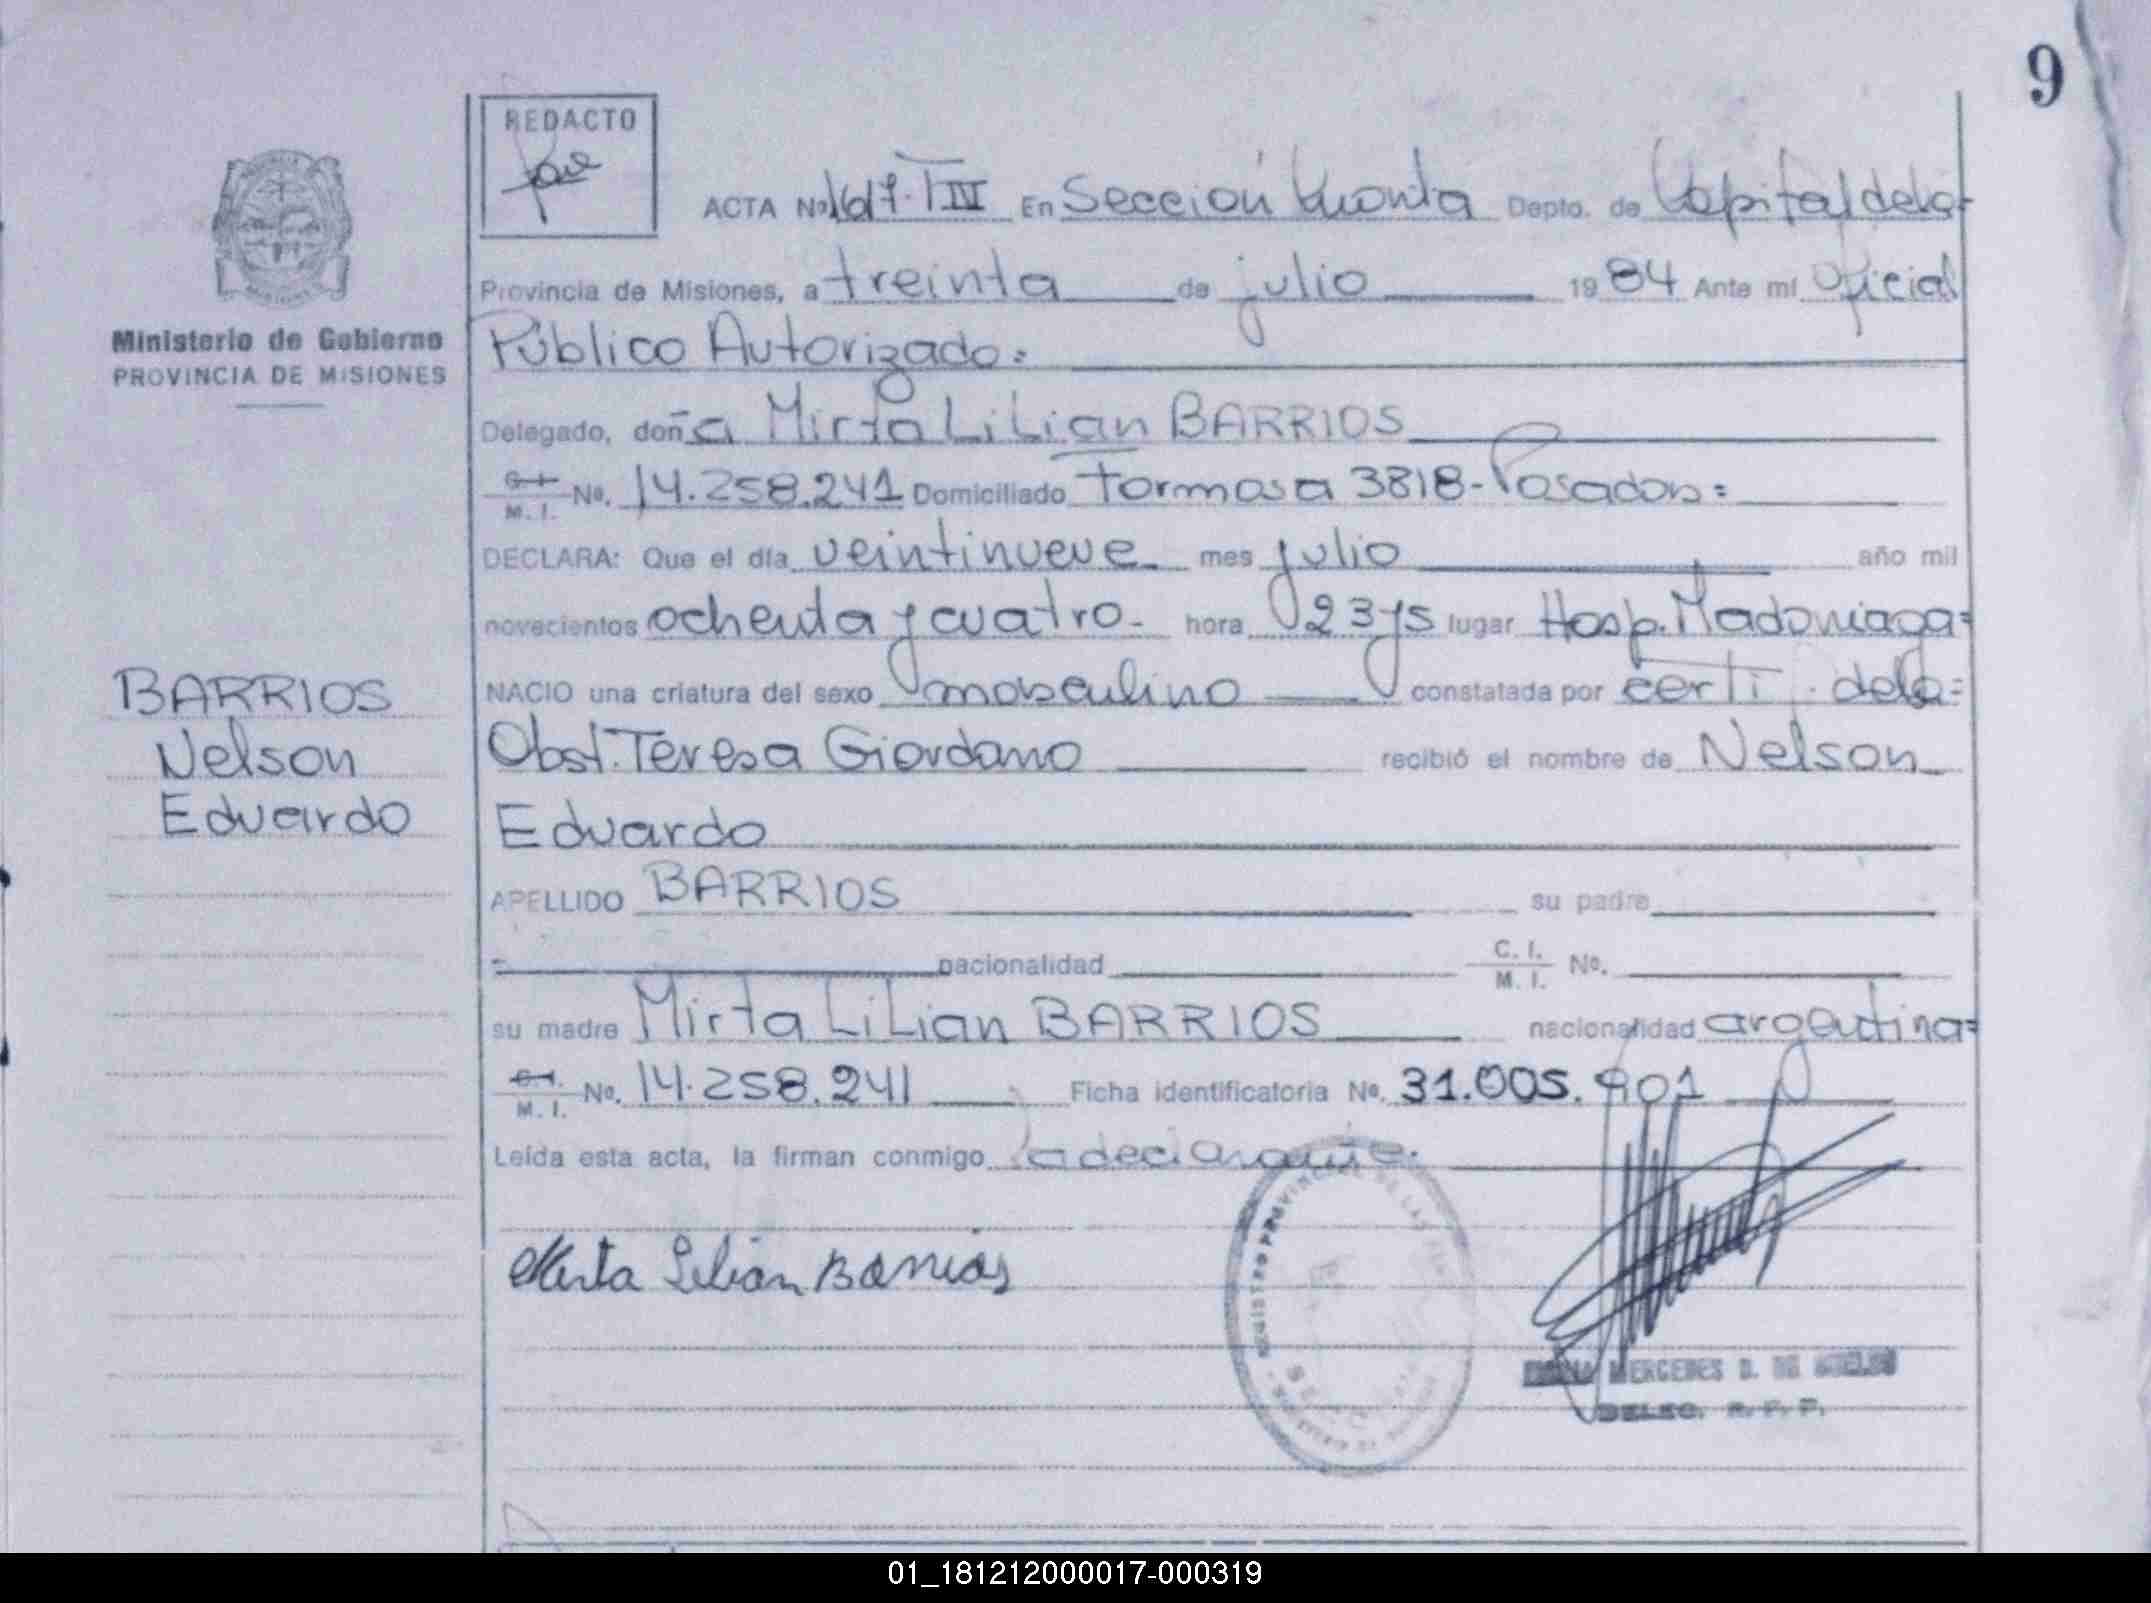 9
REDACTO
ACTA No 1617. T III En Sección Quinta Depto. de Capital de la
Provincia de Misiones, a treinta de julio 1984 Ante mi Oficial
Público Autorizado:
Ministerio de Gobierno
PROVINCIA DE MISIONES
Delegado, doña Mirta LiLian BARRIOS
M. I. No. 14.258.241 Domiciliado Formosa 3818-Posadas:
DECLARA: Que el día veintinueve mes julio año mil
novecientos ochenta y cuatro- hora 23 ys lugar Hosp. Madariaga=
NACIO una criatura del sexo masculino constatada por certi. dela=
Obst. Teresa Giordano recibió el nombre de Nelson
Eduardo
BARRIOS
Nelson
Eduardo
APELLIDO BARRIOS su padre
nacionalidad C. I. M. I. No.
su madre Mirta LiLian BARRIOS nacionalidad argentina=
C.I. M. I. No. 14.258.241 Ficha identificatoria No. 31.005.901
Leída esta acta, la firman conmigo la declarante.
Mirta Lilian Barrios
REGISTRO PROVINCIAL DE LAS
MERCEDES D. DE
DELEG. R. P. P.
01_181212000017-000319